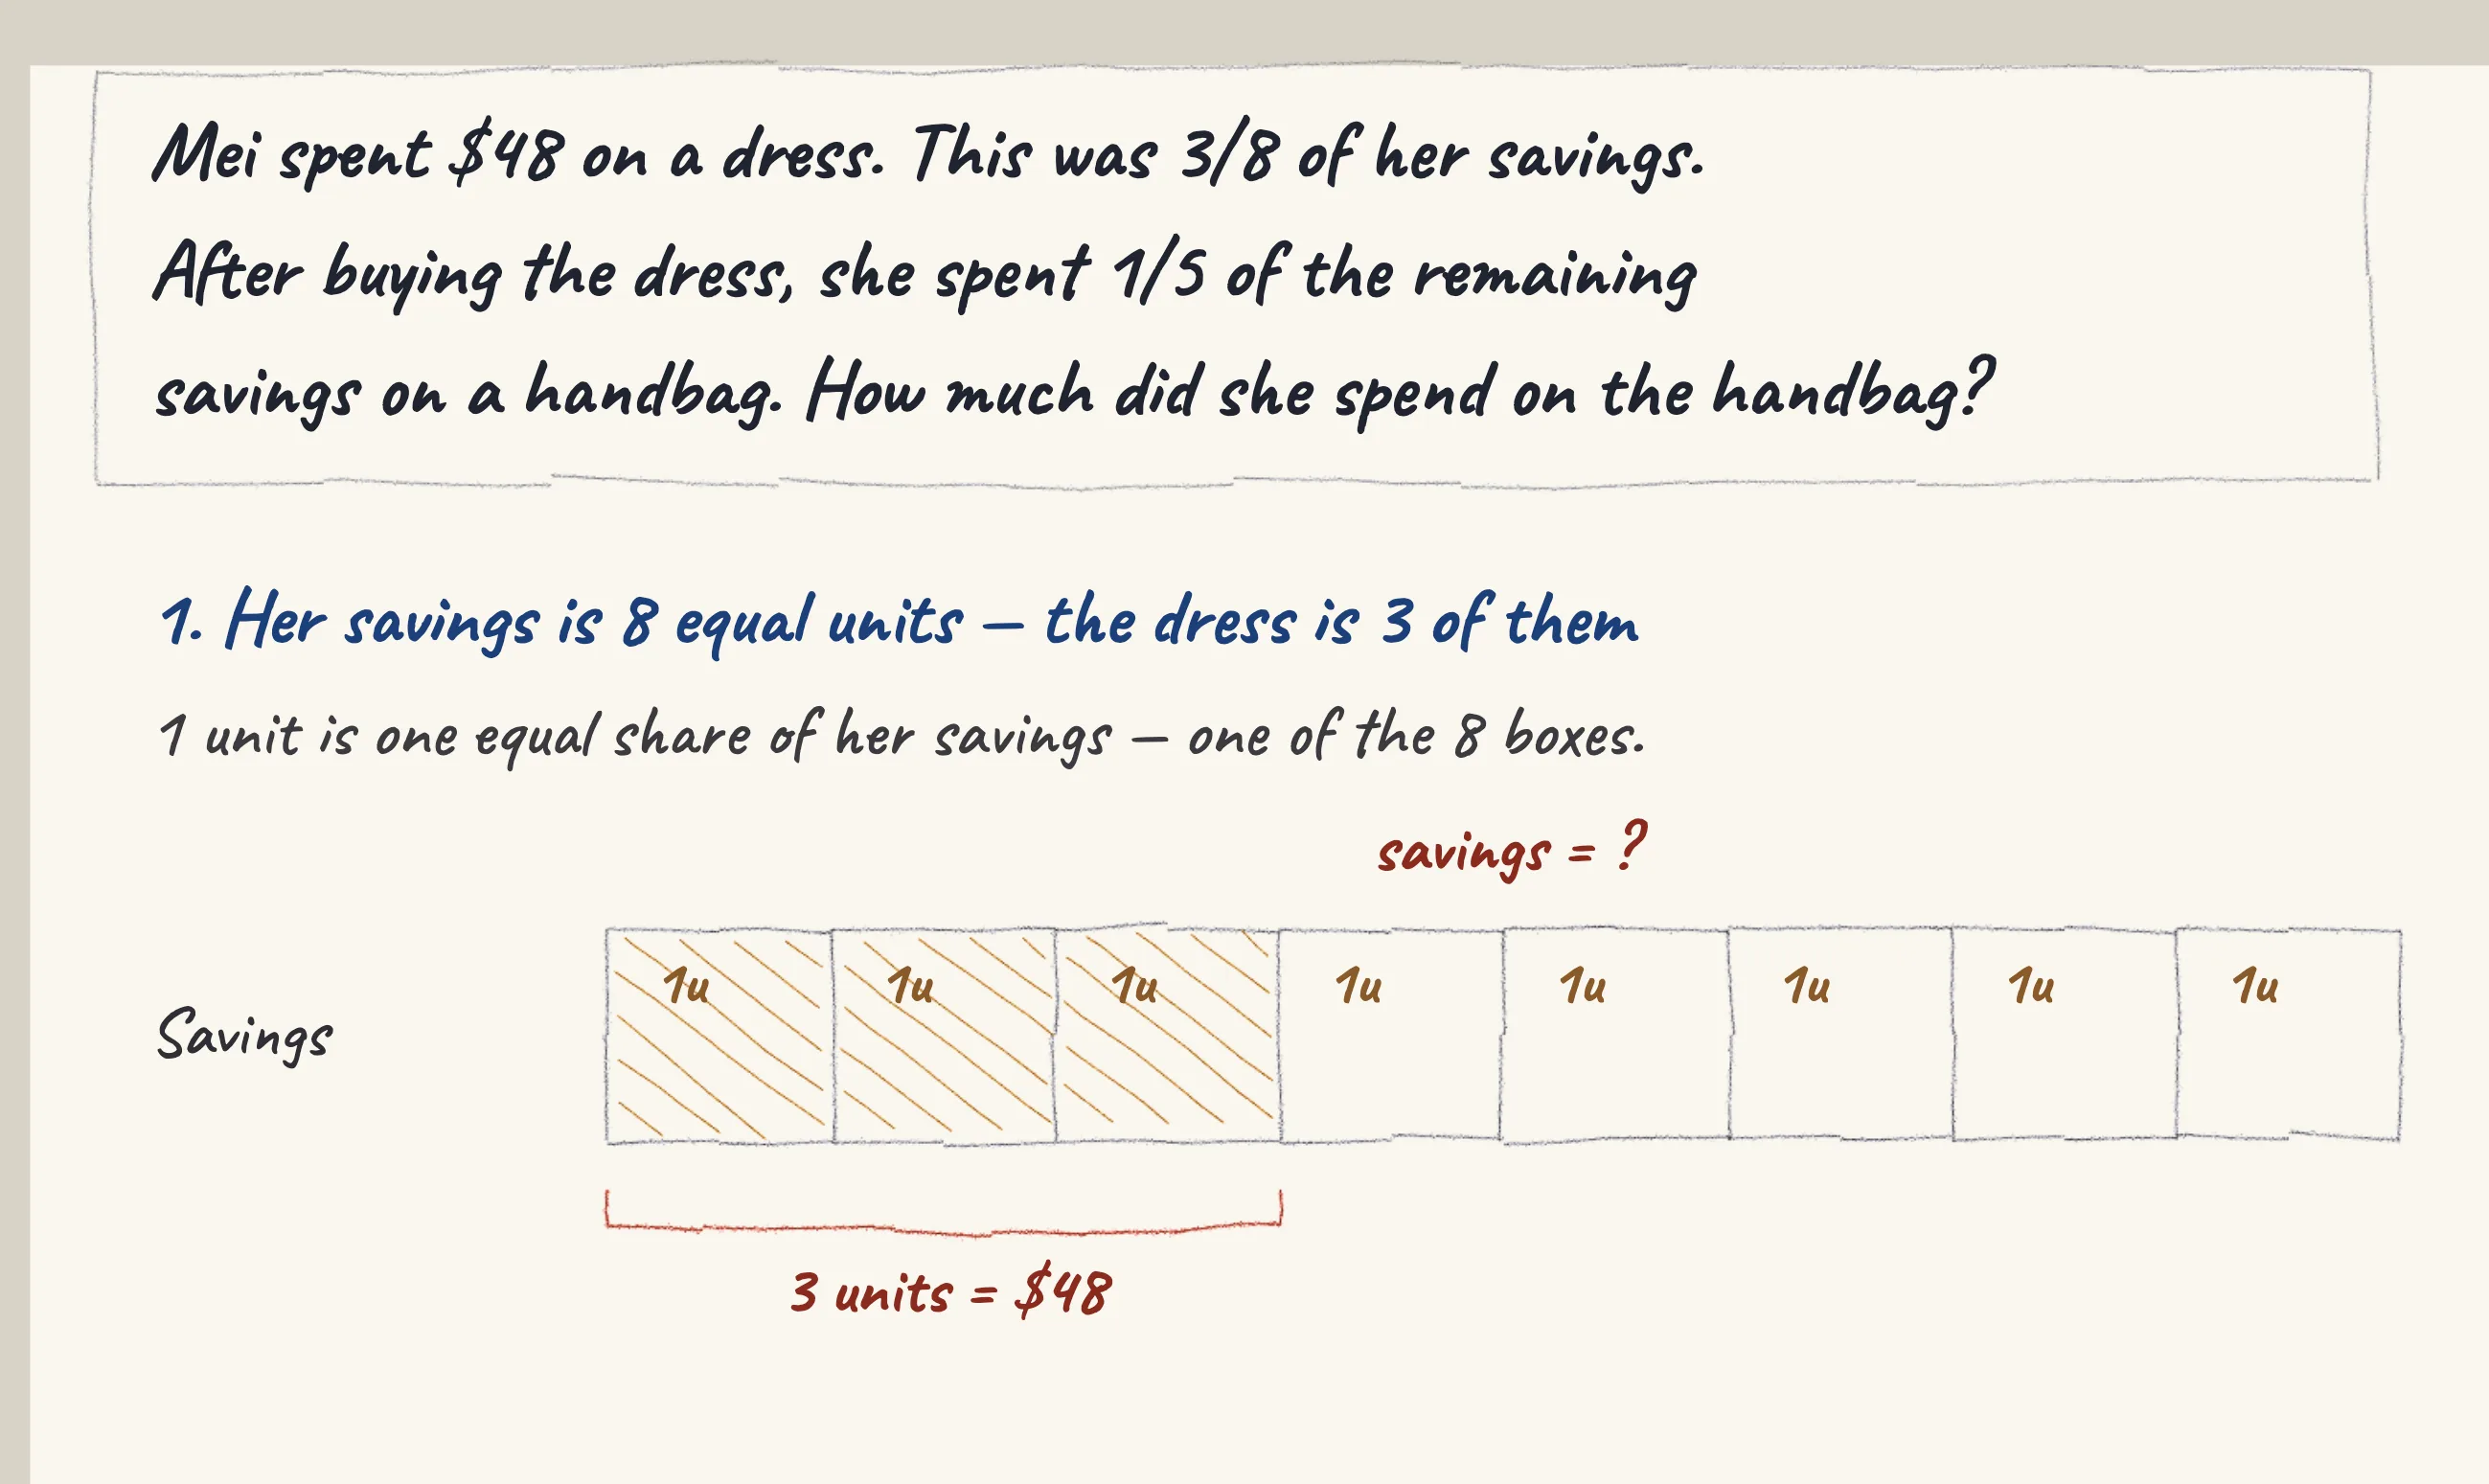 Mei spent $48 on a dress. This was 3/8 of her savings.
After buying the dress, she spent 1/5 of the remaining
savings on a handbag. How much did she spend on the handbag?
1. Her savings is 8 equal units – the dress is 3 of them
1 unit is one equal share of her savings – one of the 8 boxes.
savings = ?
1u 1u 1u 1u 1u 1u 1u 1u
Savings
3 units = $48